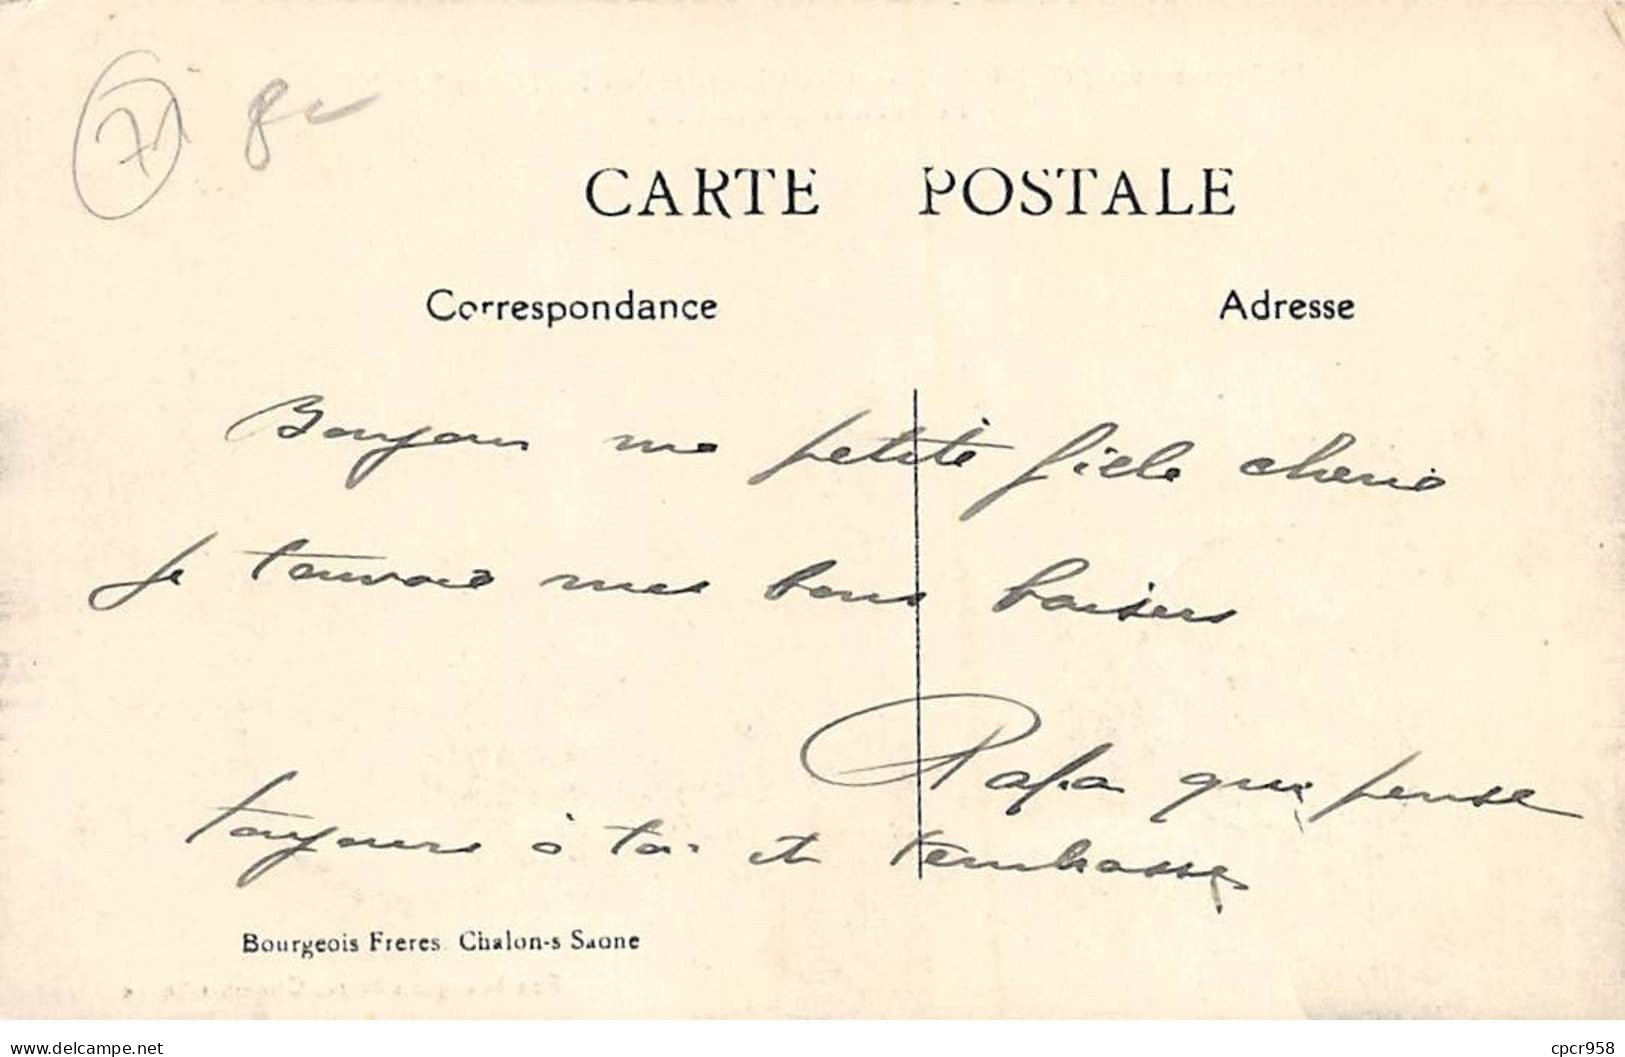 71 8
CARTE POSTALE
Correspondance
Adresse
Bonjour ma petite fiele cherie
Je t'envoie mes bons baisers
Papa qui pense
toujours à toi et t'embrasse
Bourgeois Freres. Chalon-s Saone
www.delcampe.net
cpcr958